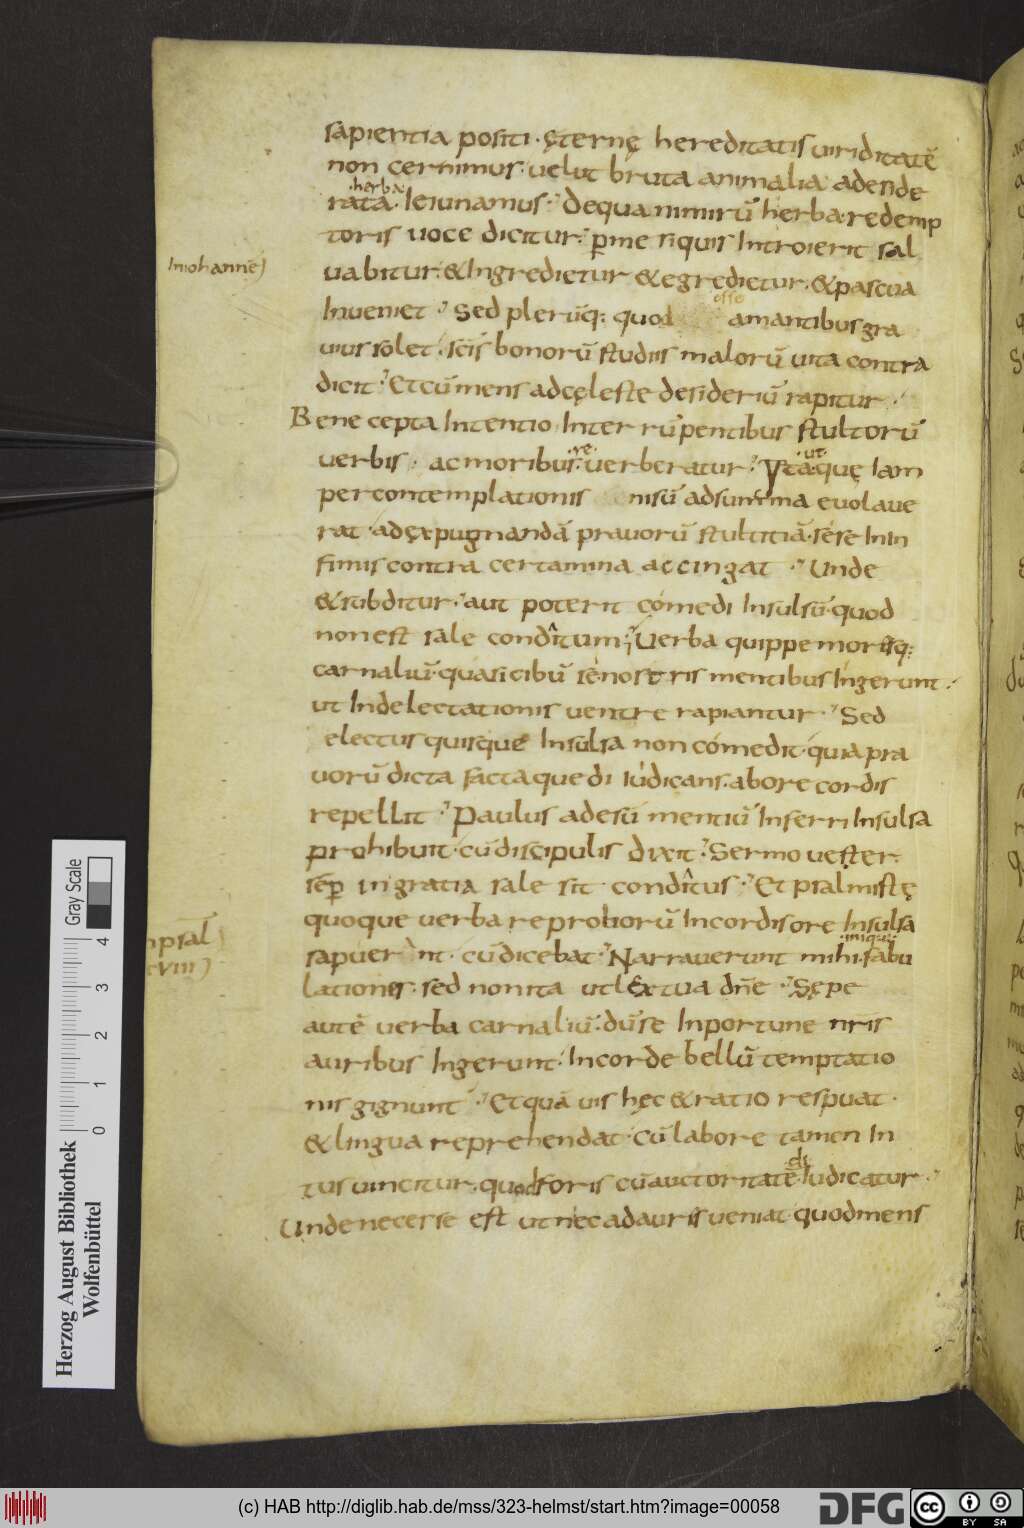 sapientia positi · ęternę hereditatis uiriditatē
non cernimus · uelut bruta animalia · a deside
·herba·
rata · Ieiunamus · De qua nimirū herba · redemp
toris uoce dicitur · p me si quis Introierit sal
In iohanne
uabitur · & Ingredietur & egredietur · & pascua
Inueniet · Sed plerūq; quod
esse
amantibus gra
uius solet · scīs bonorū studiis malorū uita contra
dicit · Et cū mens ad cęleste desideriū rapitur
Bene cepta Intentio Interrūpentibus stultorū
·re· ·ut·
uerbis · ac moribus · uerberatur · Itaquę Iam
per contemplationis nisū ad summa euolaue
rat · ad expugnandā prauorū stultitiā · sese In in
fimis contra certamina accingat · Unde
& subditur · aut poterit comedi Insulsū · quod
non est sale conditum; Uerba quippe moresq;
carnaliū · quasi cibū se nostris mentibus Ingerunt ·
ut In delectationis uentre rapiantur · Sed
electus quisque Insulsa non comedit · quia pra
uorū dicta facta que diiudicans · ab ore cordis
repellit · Paulus ad esū mentiū Inferri Insulsa
prohibuit · cū discipulis dixit · Sermo uester
sēp in gratia sale sit conditus · Et psalmistę
quoque uerba reproborū In cordis ore Insulsa
In psal
CXVIII
·iniqui·
sapuer nt · cū dicebat · Narrauerunt mihi · fabu
lationes · sed non ita ut lex tua dn̄e · Sępe
autē uerba carnaliū · dū se Inportune nr̄is
auribus Ingerunt · In corde bellū temptatio
nis gignunt · Et quāuis hęc & ratio respuat ·
& lingua reprehendat · cū labore tamen In
·di·
tus uincitur · quod foris cū auctoritate Iudicatur ·
Unde necesse est ut nec ad auris ueniat · quod mens
Herzog August Bibliothek
Wolfenbüttel
0 1 2 3 4
Gray Scale
(c) HAB http://diglib.hab.de/mss/323-helmst/start.htm?image=00058
DFG
cc BY SA